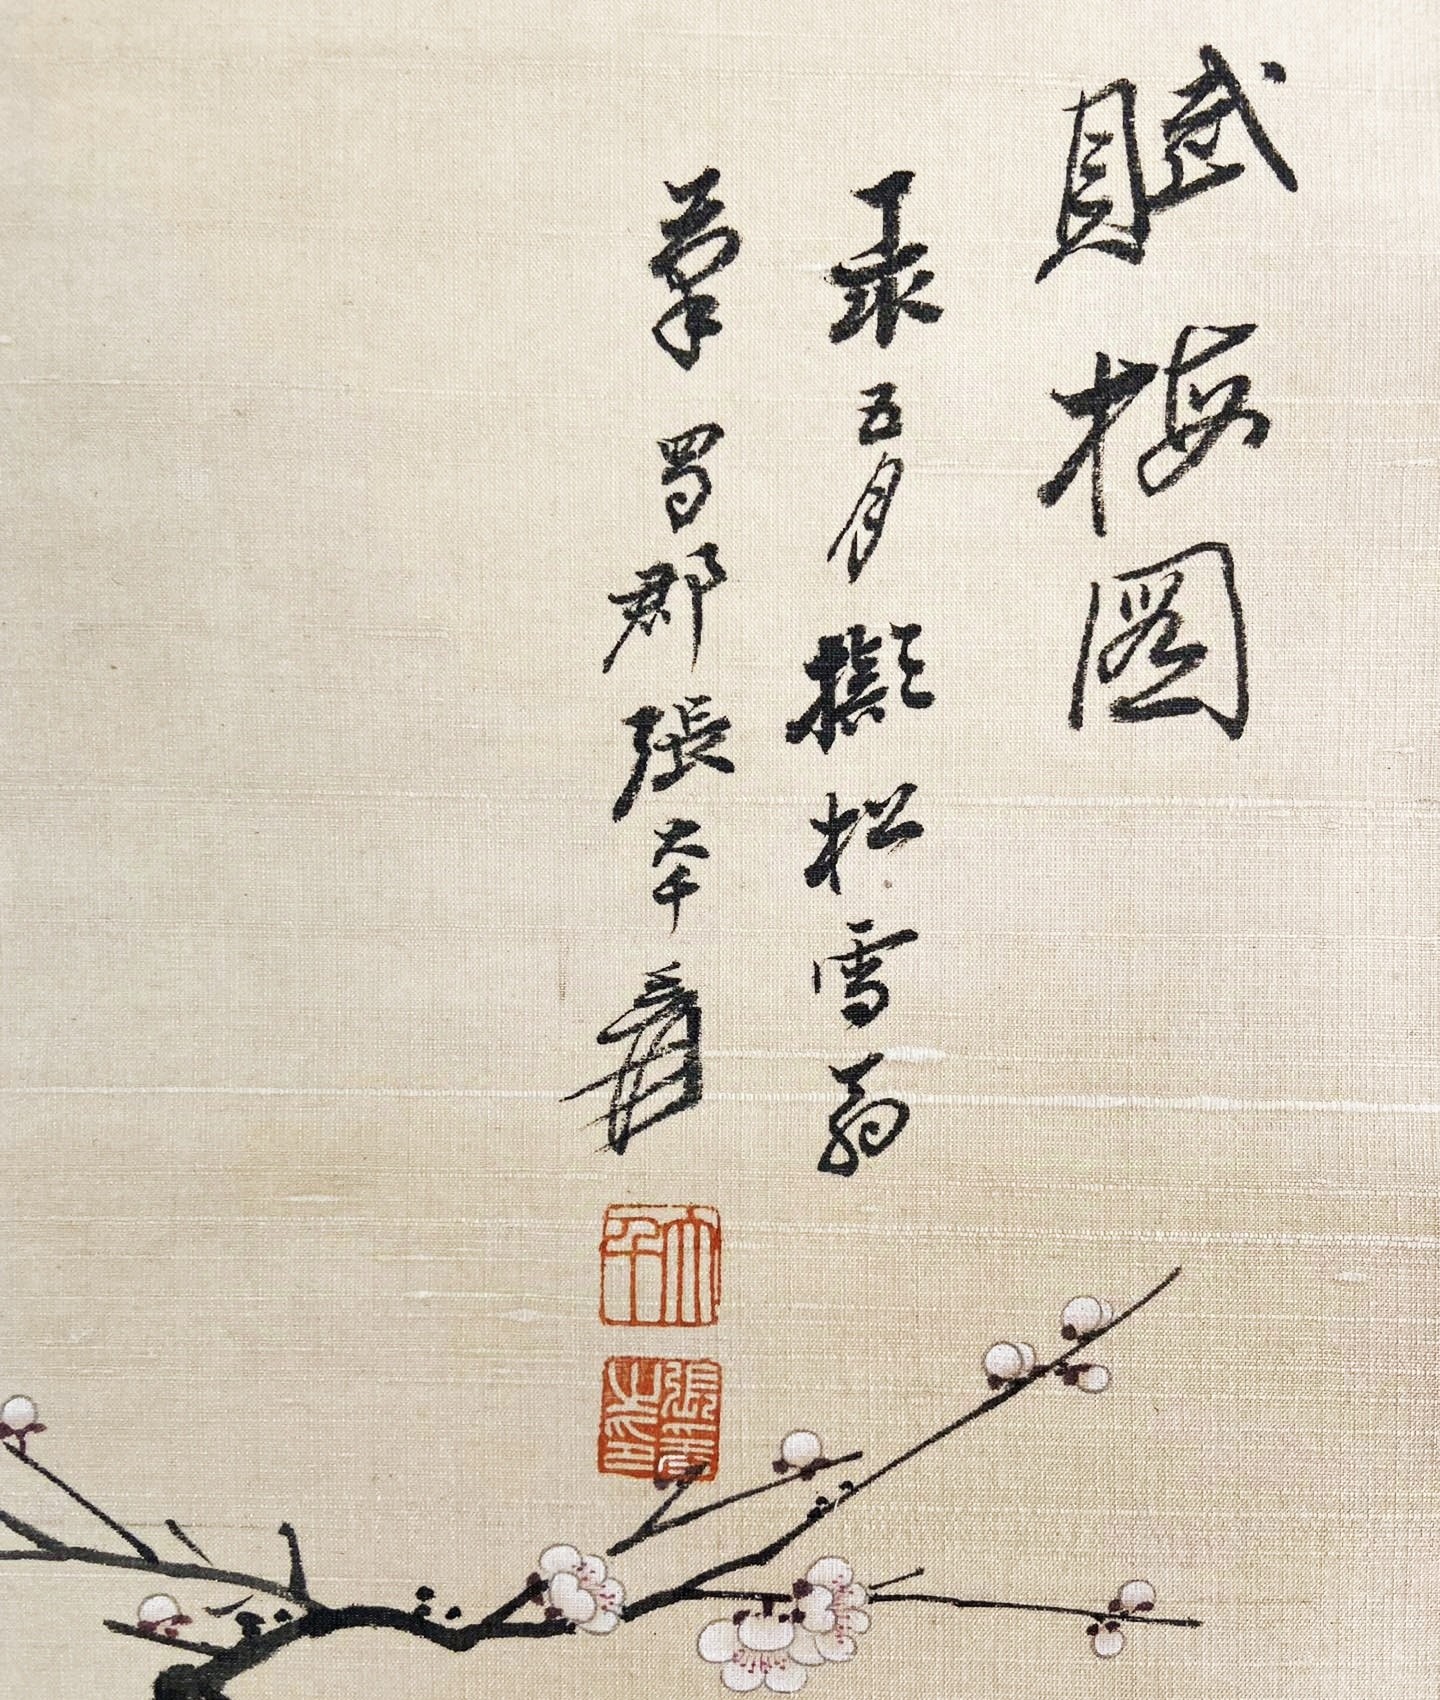 賦梅圖
丁亥五月擬松雪翁
筆蜀郡張大千爰
大千
張爰之印